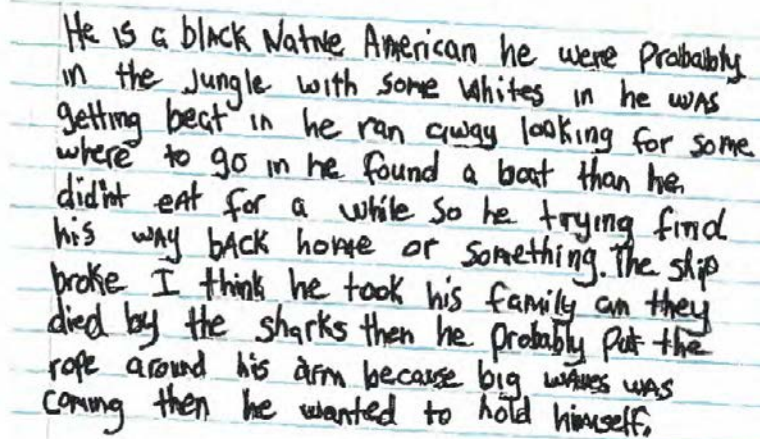 He is a black Native American he were Probabbly
in the Jungle with some Whites in he was
getting beat in he ran away looking for some
where to go in he found a boat than he
didint eat for a while so he trying find
his way back home or something. The ship
broke I think he took his family an they
died by the sharks then he probably put the
rope around his arm because big waves was
coming then he wanted to hold himself.